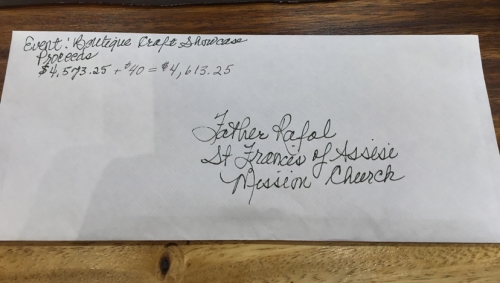 Event: Boutique Craft Showcase
Proceeds
$4,573.25 + $40 = $4,613.25
Father Rafal
St Francis of Assisi
Mission Church